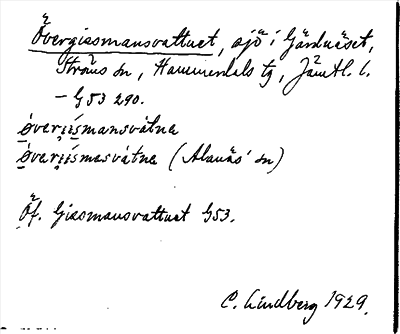 Övergissmansvattnet, sjö i Gärdnäset,
Ströms sn, Hammerdals tg, Jämtl. l.
— G 53 290.
överjiśmansvátna
överjiśmasvátna (Alanäs' sn)
Öf. Gissmansvattnet G53.
C. Lindberg 1929.